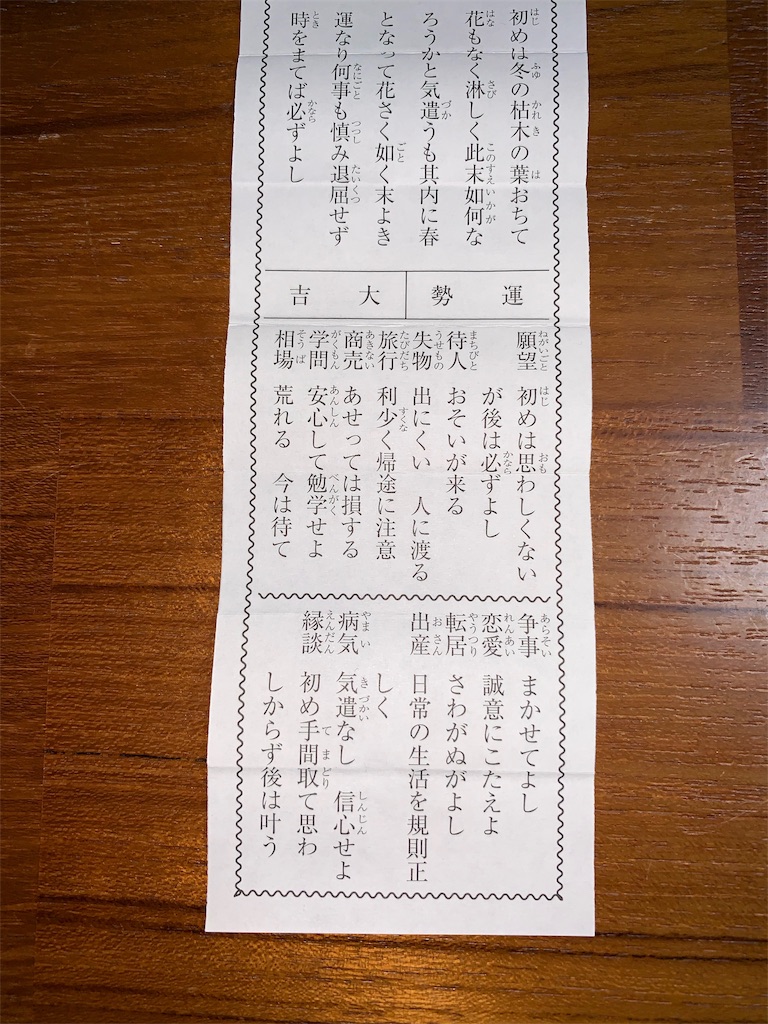 初めは冬の枯木の葉おちて
花もなく淋しく此末如何な
ろうかと気遣うも其内に春
となって花さく如く末よき
運なり何事も慎み退屈せず
時をまてば必ずよし
運勢 大吉
願望 初めは思わしくない
が後は必ずよし
待人 おそいが来る
失物 出にくい 人に渡る
旅行 利少く帰途に注意
商売 あせっては損する
学問 安心して勉学せよ
相場 荒れる 今は待て
争事 まかせてよし
恋愛 誠意にこたえよ
転居 さわがぬがよし
出産 日常の生活を規則正
しく
病気 気遣なし 信心せよ
縁談 初め手間取て思わ
しからず後は叶う